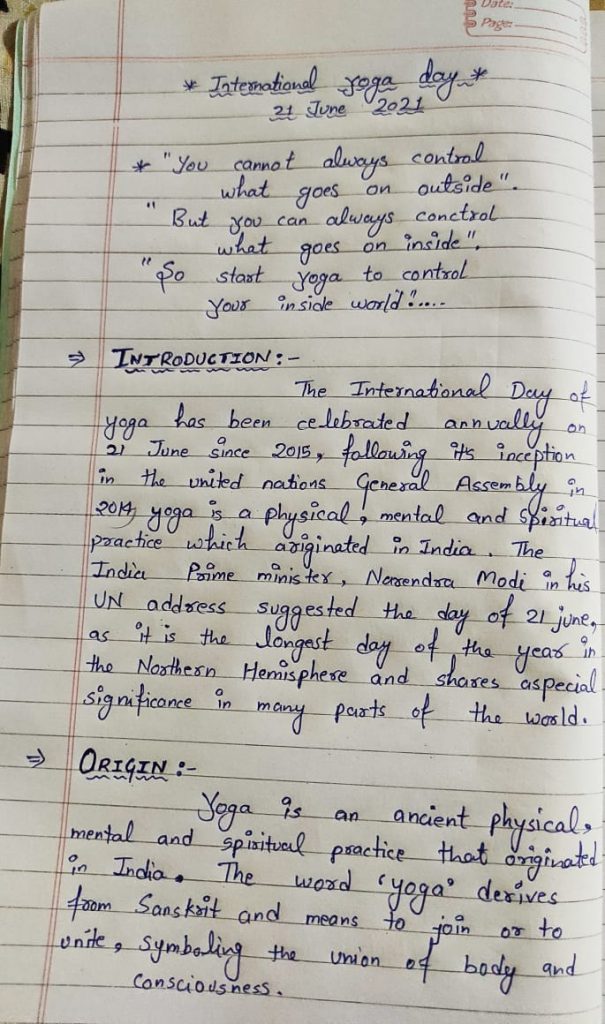 Date:
Page:
* International yoga day *
21 June 2021
* "You cannot always control
what goes on outside".
" But you can always conctrol
what goes on inside".
"So start yoga to control
your inside world!....
⇒ INTRODUCTION :-
The International Day of
yoga has been celebrated annually on
21 June since 2015, following its inception
in the united nations General Assembly in
2014, yoga is a physical, mental and spiritual
practice which originated in India. The
India Prime minister, Narendra Modi in his
UN address suggested the day of 21 june,
as it is the longest day of the year in
the Northern Hemisphere and shares aspecial
significance in many parts of the world.
⇒ ORIGIN :-
Yoga is an ancient physical,
mental and spiritual practice that originated
in India. The word 'yoga' derives
from Sanskrit and means to join or to
unite, symboling the union of body and
consciousness.